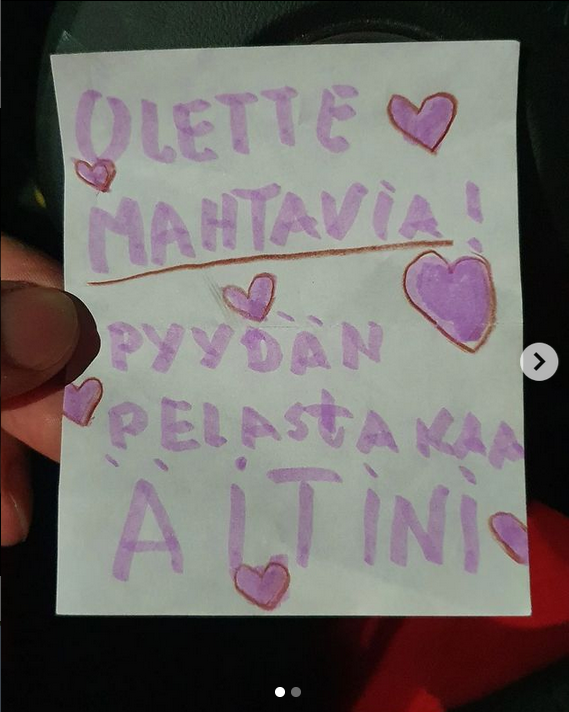 OLETTE
MAHTAVIA!
PYYDÄN
PELASTAKAA
ÄITINI